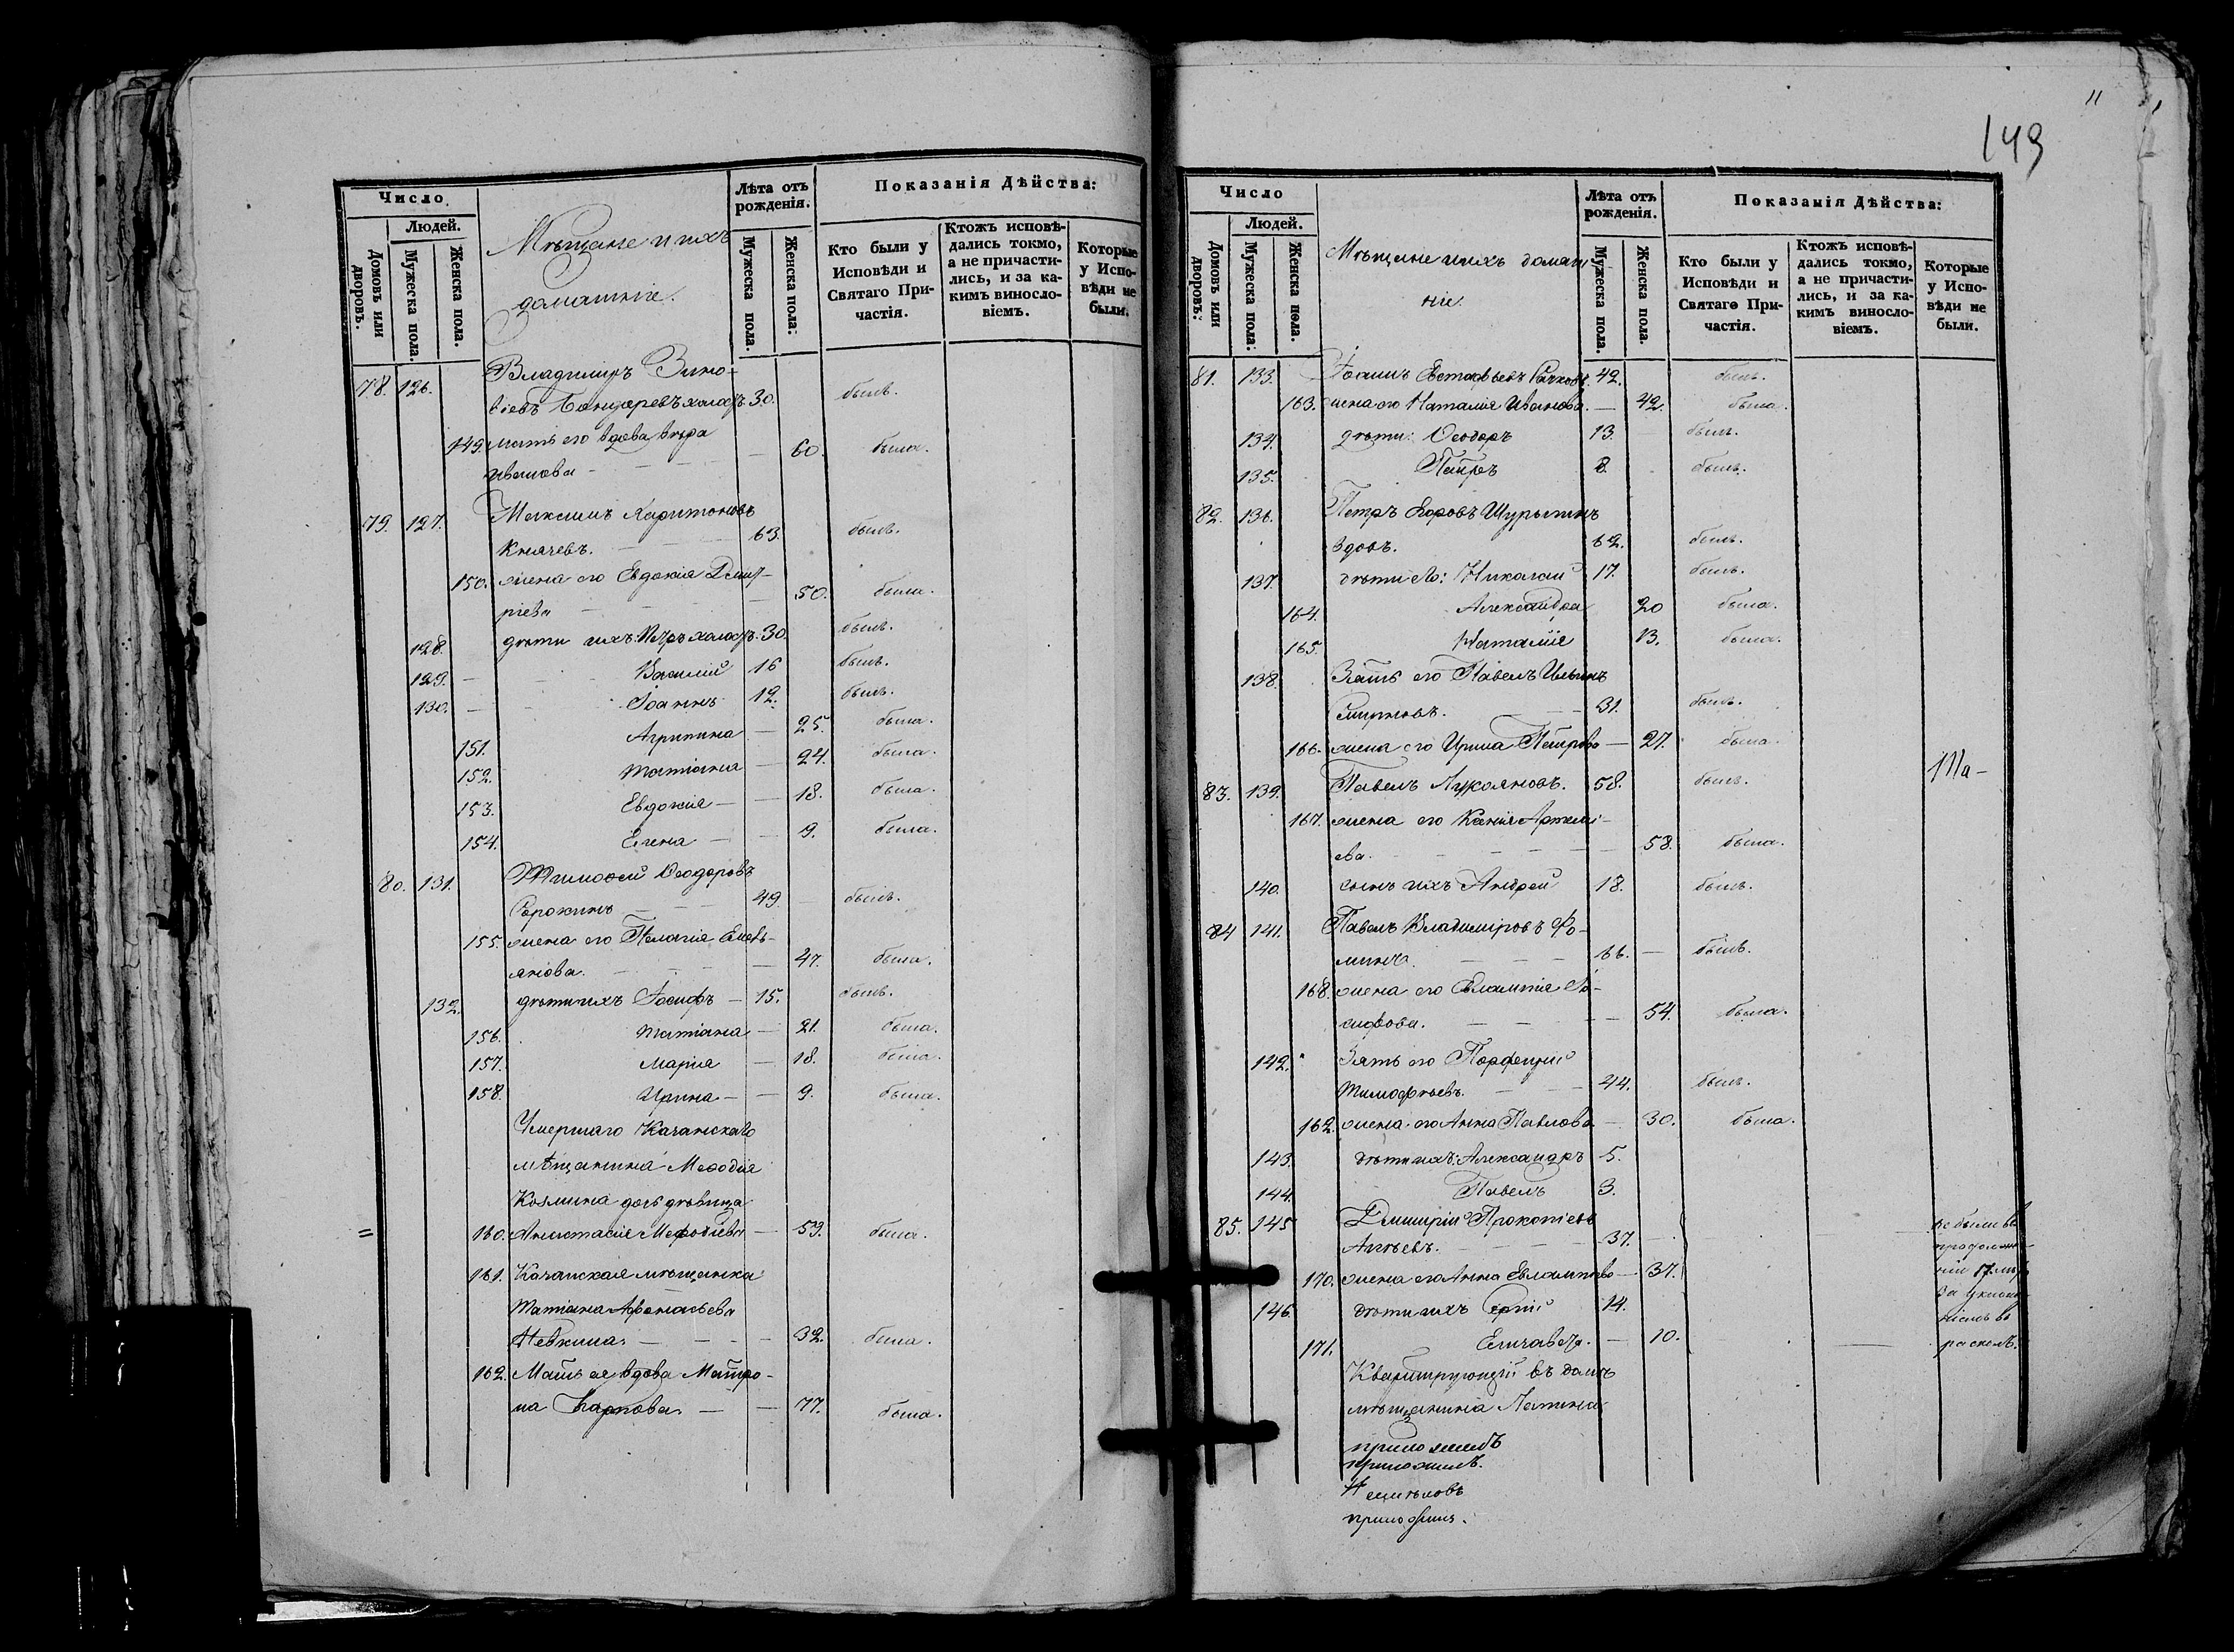 Число
Людей.
Домовъ или дворовъ.
Мужеска пола.
Женска пола.
Мѣщане и ихъ
домашніе.
Лѣта отъ рожденія.
Мужеска пола.
Женска пола:
Показанія Дѣйства:
Кто были у Исповѣди и Святаго Причастія.
Ктожъ исповѣдались токмо, а не причастились, и за какимъ винословіемъ.
Которые у Исповѣди не были.
78. 126. Владимиръ Зино-
віевъ Бондаревъ холостъ 30. былъ.
149. мать его вдова Вѣра
Иванова - 60. была.
79. 127. Максимъ Харитоновъ
Князевъ. 63. былъ.
150. жена его Евдокія Дмит-
ріева 50. была.
128. дѣти ихъ: Петръ холостъ. 30. былъ.
129. Василій 16 былъ.
130. Іоаннъ 12. былъ.
151. Агрипина - 25. была.
152. Татіана - 24. была.
153. Евдокія - 18. была.
154. Елена - 9. была.
80. 131. Тимоѳей Ѳеодоровъ
Сорокинъ 49. былъ.
155. жена его Пелагія Емель-
янова. 47. была.
132. дѣти ихъ Іосифъ - 15. былъ.
156. Татіана - 21. была.
157. Марія - 18. была.
158. Ирина - 9. была.
Умершаго Казанскаго
мѣщанина Меѳодія
Козмина дочь дѣвица
= 160. Анастасія Меѳодіева - 59. была.
161. Казанская мѣщанка
Татіана Афонасьева
- 32. была.
162. Мать ея вдова Матро-
на Карпова. - 77. была.
11
149
Число
Людей.
Домовъ или дворовъ:
Мужеска пола:
Женска пола.
Мѣщане и ихъ домаш-
ніе.
Лѣта отъ рожденія.
Мужеска пола.
Женска пола.
Показанія Дѣйства:
Кто были у Исповѣди и Святаго Причастія.
Ктожъ исповѣдались токмо, а не причастились, и за какимъ винословіемъ.
Которые у Исповѣди не были.
81. 133. Іоаннъ Евстафьевъ 42. былъ.
163. жена его Наталія Иванова. - 42. была.
134. дѣти: Ѳеодоръ 13. былъ.
135. Петръ 8. былъ.
82. 136. Петръ Егоровъ Шурыгинъ
вдовъ. 62. былъ.
137. дѣти его: Николай 17. былъ.
164. Александра 20 была.
165. Наталія 13. была.
138. Зять его Павелъ Ильинъ
Смирновъ. 31. былъ.
166. жена его Ирина Петрова - 27. была.
83. 139. Павелъ Лукояновъ. 58. былъ.
167. жена его Ксенія Артемі-
ева. 58. была.
140. сынъ ихъ Андрей 18. былъ.
84 141. Павелъ Владиміровъ Фо-
минъ. 66. - былъ.
168. жена его Евлампія Іо-
сифова. 54. была.
142. Зять его Порфирій
Тимофѣевъ. 44. былъ.
162. жена его Анна Павлова - 30. была.
143. дѣти ихъ: Александръ 5.
144. Павелъ 3.
85. 145 Димитрій Прокопіевъ
37. - не были въ
продолже-
170. жена его Анна Евлампіева - 37. ніи 17. лѣтъ
146. дѣти ихъ 14. за уклоне-
ніемъ въ
171. Елизавета. - 10. расколъ.
Квартирующій въ домѣ
мѣщанина